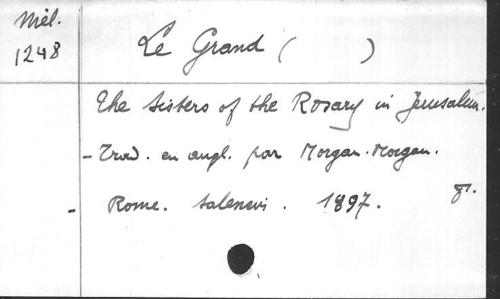 Mél.
1248
Le Grand ( )
The Sisters of the Rosary in Jerusalem.
- Trad. en angl. par Morgan-Morgan.
- Rome. Salesius. 1897. 8°.